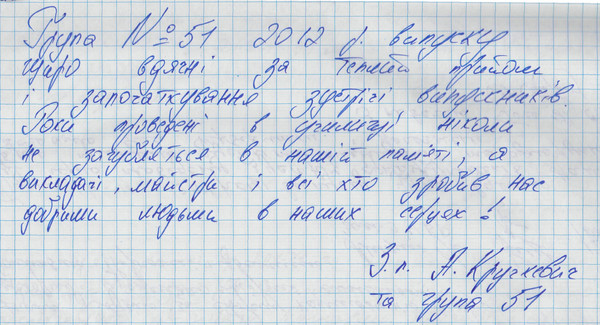 Група № 51 2012 р. випуску
щиро вдячні за теплий прийом
і започаткування зустрічі випускників.
Роки проведені в училищі ніколи
не загубляться в нашій памяті, а
викладачі, майстри і всі хто зробив нас
добрими людьми в наших серцях!
З.п. А. Кручкевич
та група 51